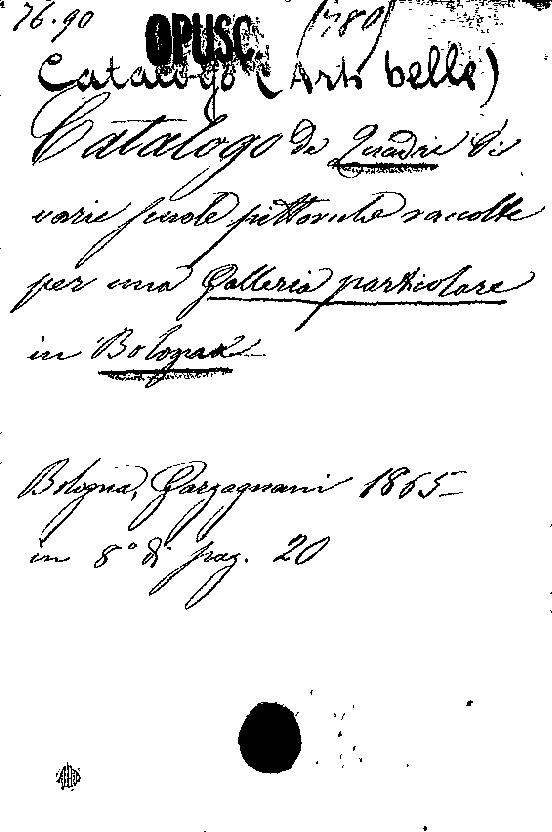 76.90 OPUSC. (780)
Catalogo (Arti belle)
Catalogo de Quadri di
varie scuole pittoriche raccolte
per una Galleria particolare
in Bologna
Bologna, Gargagnani 1865
in 8° di pag. 20